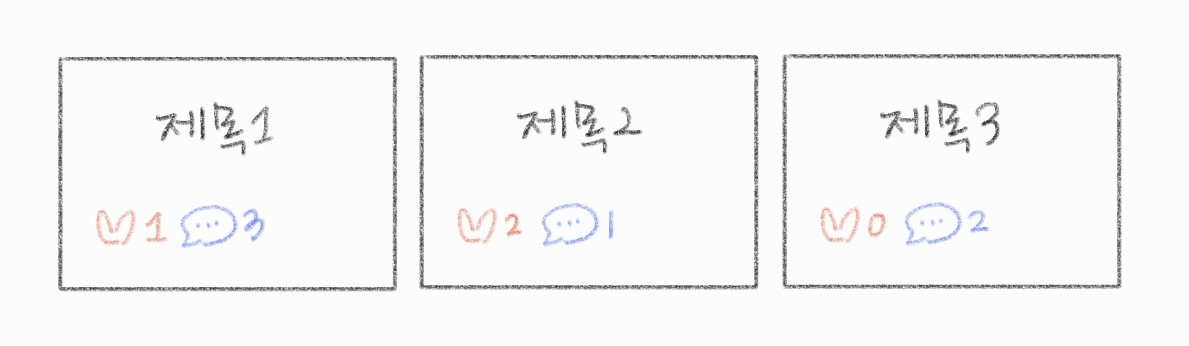 제목1
1 3
제목2
2 1
제목3
0 2